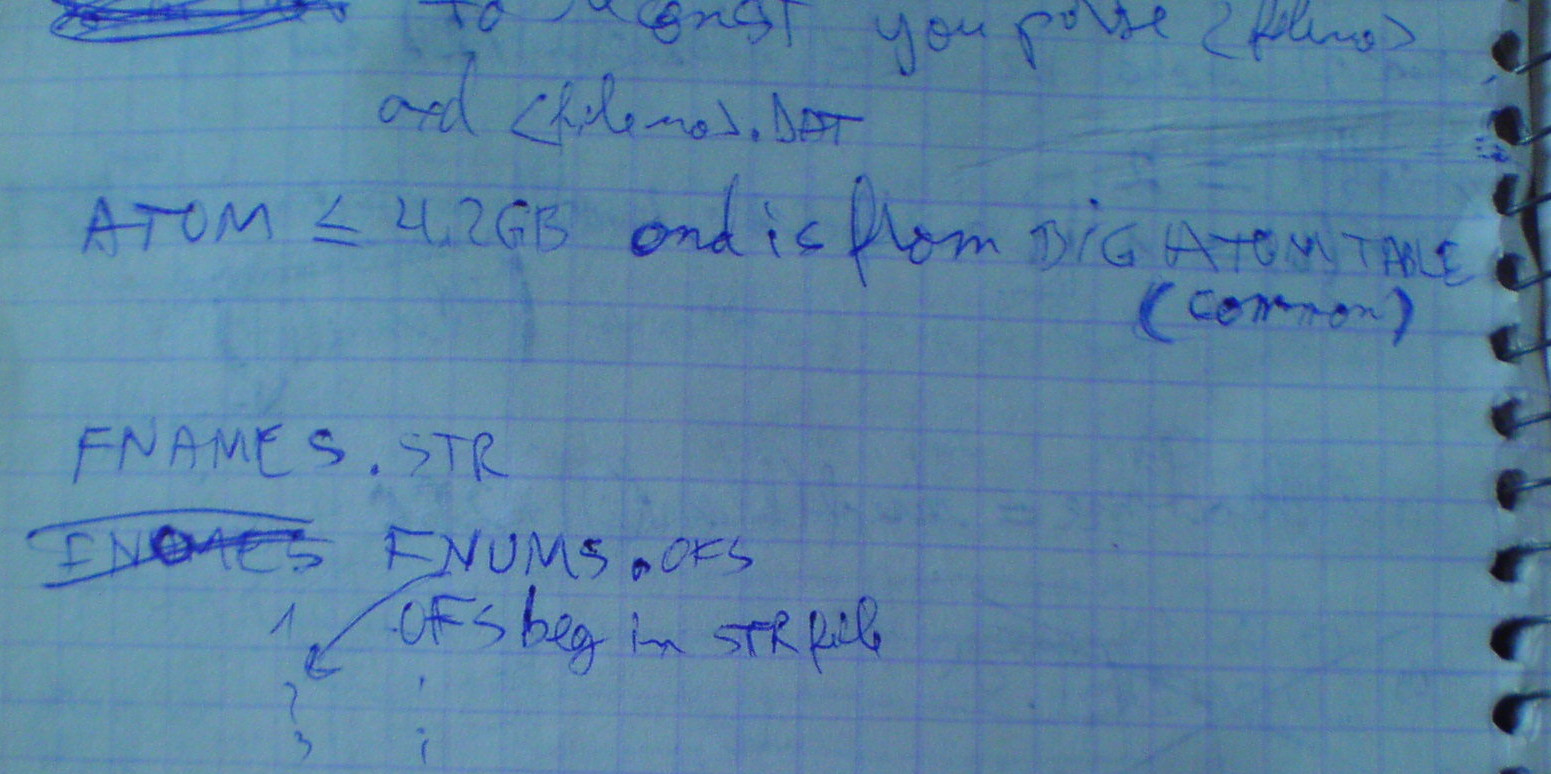 to reconst you parse <fileno>
and <fileno>.DAT
ATOM ≤ 4.2GB and is from BIG ATOM TABLE
(common)
FNAMES.STR
FNAMES FNUMS.OFS
1 OFS beg in STR file
2 :
3 :